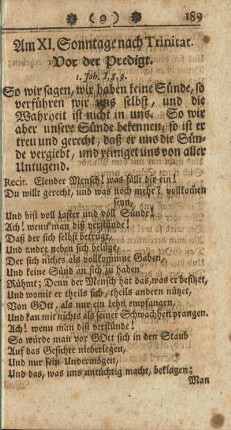 ( o ) 189
Am XI. Sonntage nach Trinitat.
Vor der Predigt.
1. Joh. I, 8. 9.
So wir sagen, wir haben keine Sünde, so
verführen wir uns selbst, und die
Wahrheit ist nicht in uns. So wir
aber unsere Sünde bekennen, so ist er
treu und gerecht, daß er uns die Sün-
de vergiebt, und reiniget uns von aller
Untugend.
Recit. Elender Mensch! was fällt dir ein?
Du willt gerecht, und was noch mehr? vollkomen
seyn,
Und bist voll Laster und voll Sünde!
Ach! wenn man diß verstünde!
Daß der sich selbst betrüge,
Und andre neben sich belüge,
Der sich nichts als vollkommne Gaben,
Und keine Sünd an sich zu haben
Rühmt; Denn der Mensch hat das, was er besitzet,
Und womit er theils sich, theils andern nützet,
Von GOtt, als nur ein Lehn empfangen,
Und kan mit nichts als seiner Schwachheit prangen.
Ach! wenn man diß verstünde!
So würde man vor GOtt sich in den Staub
Auf das Gesichte niederlegen,
Und nur sein Unvermögen,
Und das, was uns untüchtig macht, beklagen;
Man